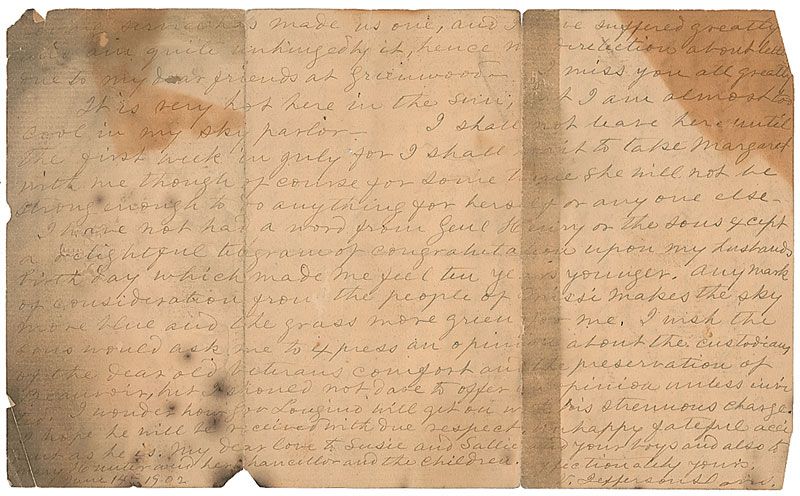 service has made us one, and I have suffered greatly
and am quite unhinged by it, hence my about letters
due to my dear friends at Greenwood— I miss you all greatly
It is very hot here in the sun, but I am almost too
cool in my sky parlor— I shall not leave here until
the first week in July for I shall to take Margaret
with me though of course for some time she will not be
strong enough to do anything for herself or any one else—
I have not had a word from Genl Henry or the sons except
a delightful telegram of congratulation upon my husbands
birth day which made me feel ten years younger. Any mark
of consideration from the people of Missi makes the sky
more blue and the grass more green for me. I wish the
sons would ask me to express an opinion about the custodian
of the dear old Veterans comfort and the preservation of
Beauvoir, but I should not dare to offer an opinion unless
I wonder how Gov Longino will get on with his strenuous charge.
I hope he will be received with due respect unhappy fateful
as he is. My dear love to Susie and Sallie and your boys and also to
and her chancellor and the children. affectionately yours,
June 14th 1902 V. Jefferson Davis.